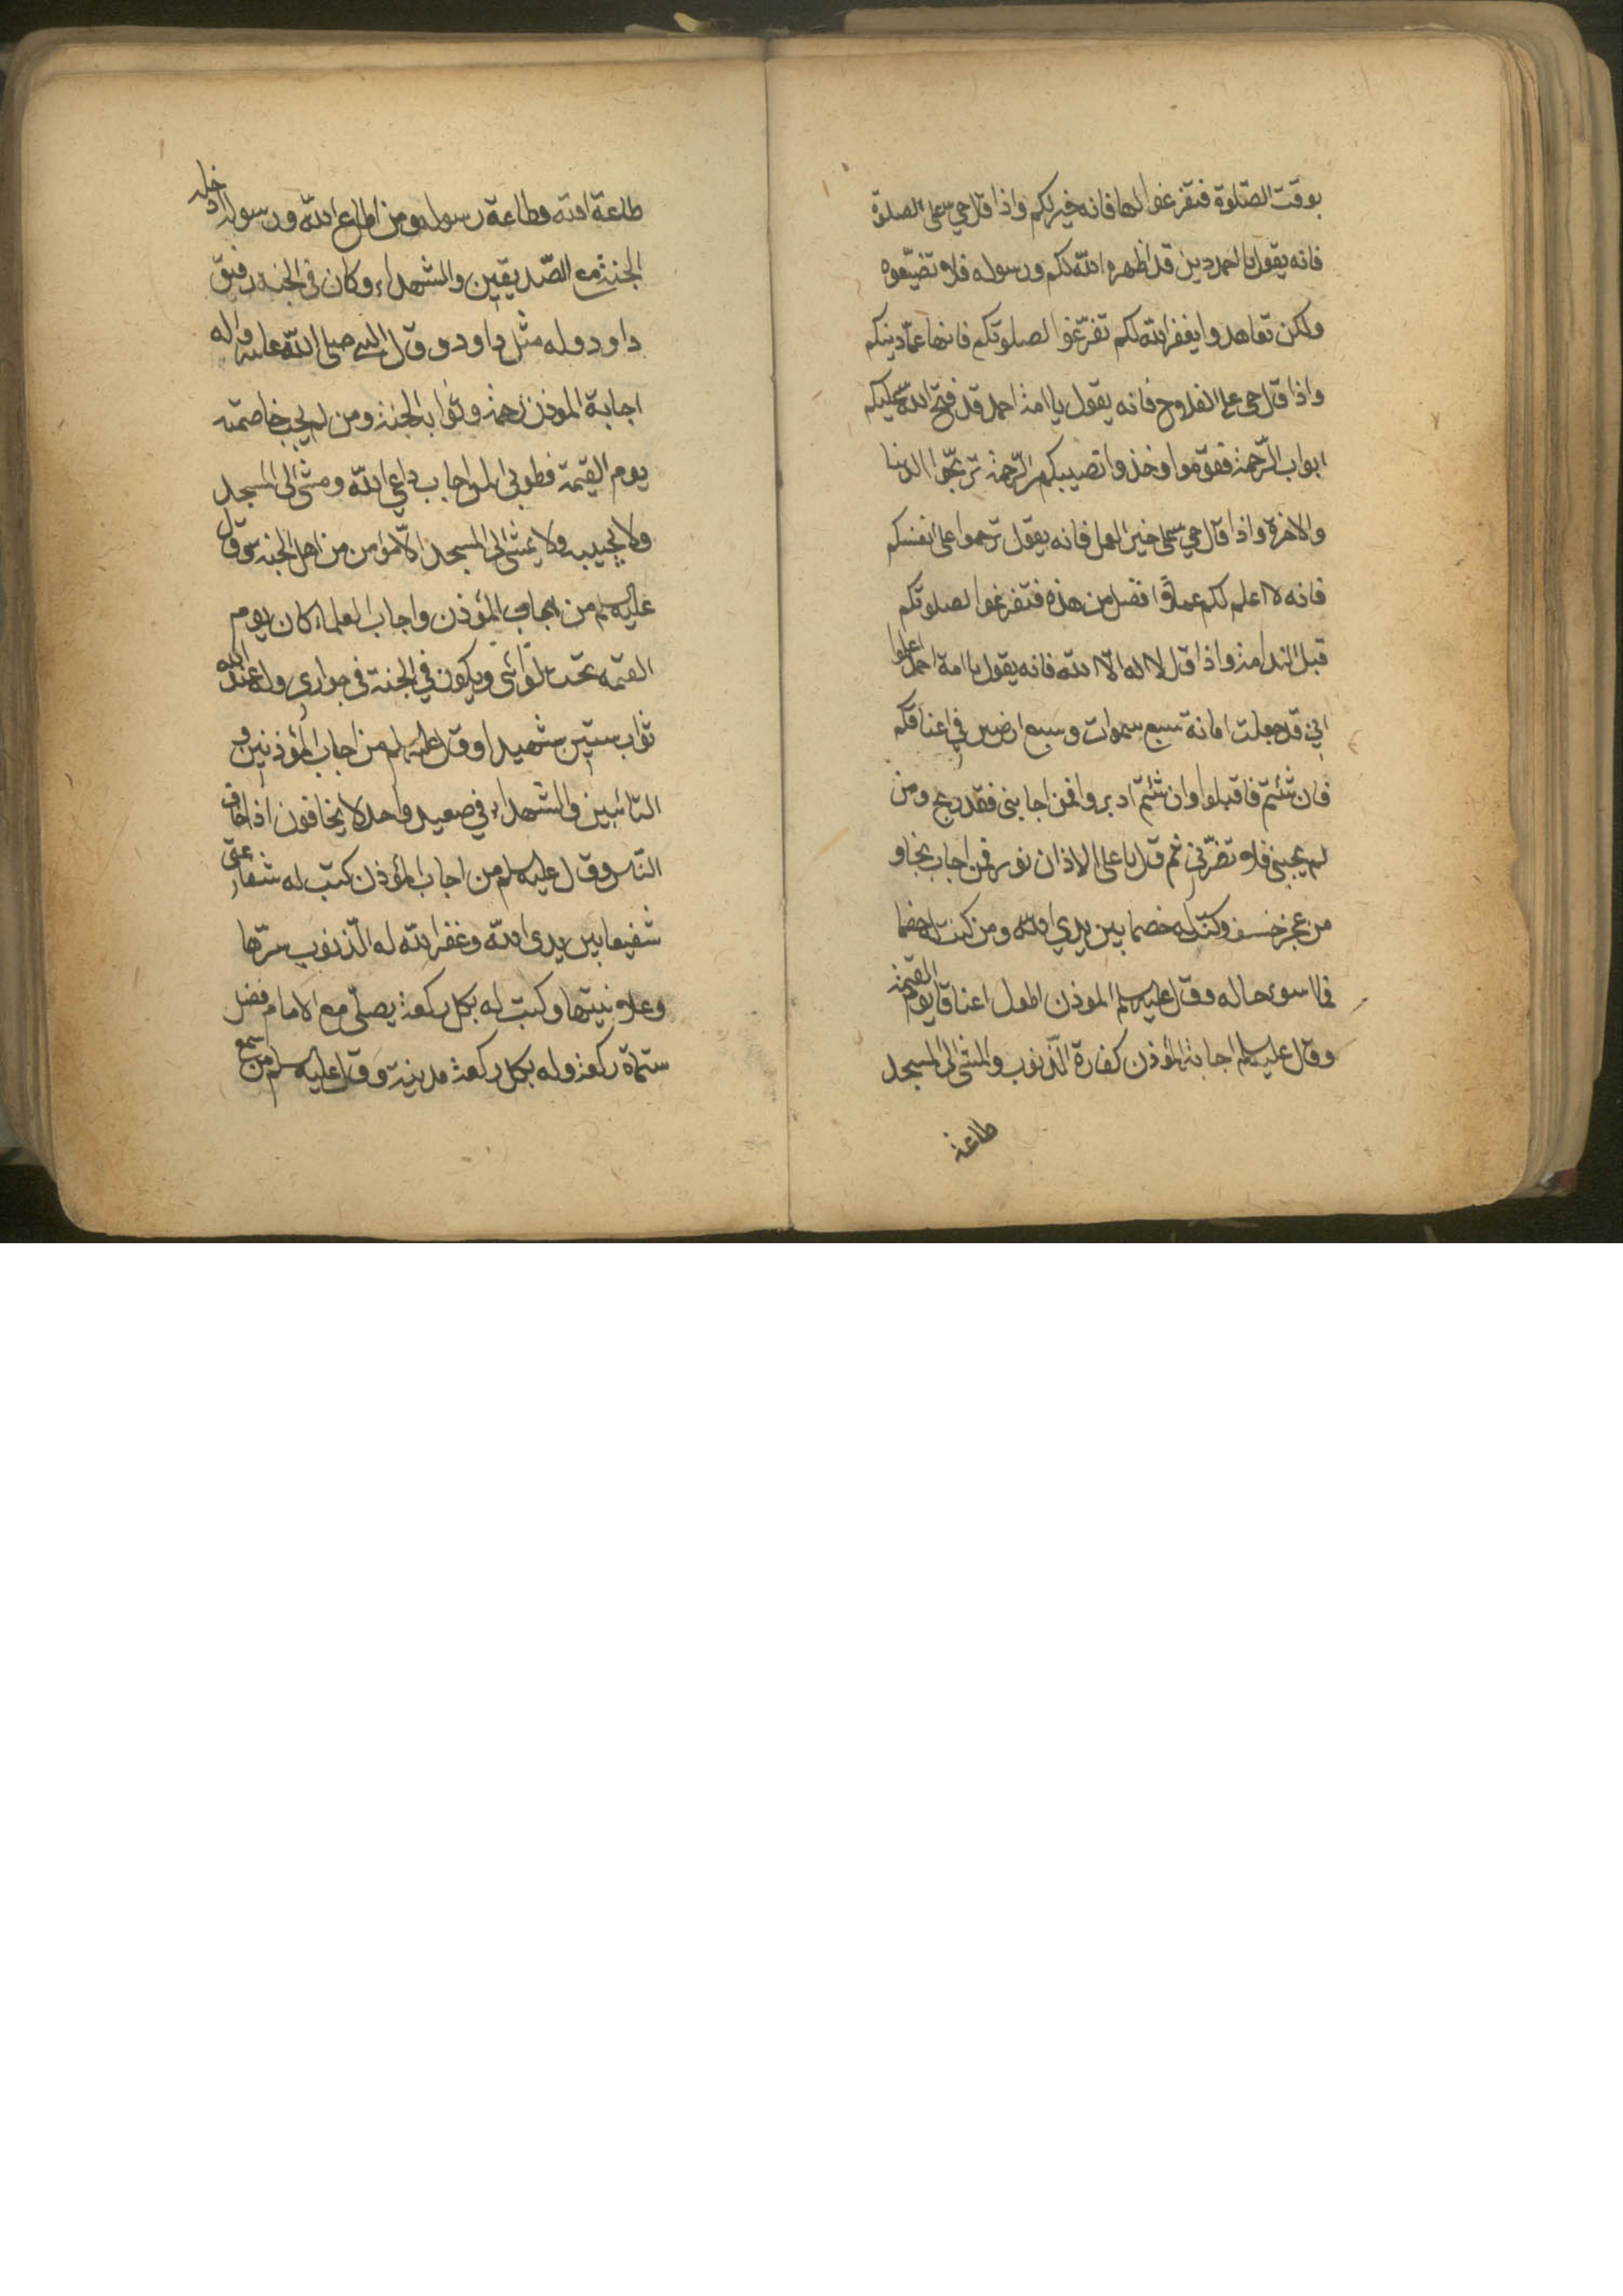 بوقت الصّلوة فتفرغوا لها فانه خير لكم واذا قال حي على الصلوة
فانه يقول يا احمد دين قد اظهره الله لكم ورسوله فلا تضيّعوه
ولكن تعاهدوا يغفر الله لكم تفرّغوا لصلوتكم فانها عماد دينكم
واذا قال حى على الفلاح فانه يقول يا امة احمد قد فتح الله عليكم
ابواب الرّحمة فقوموا وخذوا نصيبكم من الرّحمة تربحوا الدنيا
والاخرة واذا قال حي على خير العمل فانه يقول ترحموا على انفسكم
فانه لا اعلم لكم عملا افضل من هذه فتفرغوا لصلوتكم
قبل الندامة واذا قال لا اله الّا الله فانه يقول يا امة احمد اعلموا
اني قد جعلت امانة سبع سموات وسبع ارضين في اعناقكم
فان شئتم فاقبلوا وان شئتم ادبروا فمن اجابنى فقد ربح ومن
لم يجبنى فلا تضرّني ثم قال يا على الاذان نور فمن اجاب نجا و
من عجز خسف وكنت له خصما بين يدي الله ومن كنت له خصما
فما اسوء حاله وقال عليه السلم الموذن اطول اعناقا يوم القيمة
وقال عليه السلم اجابة المؤذن كفارة الذنوب والمشى الى المسجد
طاعة
طاعة الله وطاعة رسوله ومن اطاع الله ورسوله ادخله
الجنة مع الصّديقين والشهداء وكان فى الجنة رفيق
داود وله مثل داود وقال النبي صلى الله عليه واله
اجابة المؤذن رحمة وثوابه الجنة ومن لم يجب خاصمته
يوم القيمة فطوبى لمن اجاب داعي الله ومشى الى المسجد
ولا يجيبه ولا يمشى الى المسجد الّا مؤمن من اهل الجنة وقال
عليه السلم من اجاب المؤذن واجاب العلماء كان يوم
القيمه تحت لوائى ويكون في الجنة فى جواري وله عند الله
ثواب ستين شهيدا وقال عليه السلم من اجاب المؤذنين و
التائبين والشهداء في صعيد واحد لا يخافون اذا خاف
النّاس وقال عليه السلم من اجاب المؤذن كتب له
شفيعا بين يدى الله وغفر الله له الذنوب سرّها
وعلانيتها وكتب له بكل ركعة يصلّى مع الامام فضل
ستماة ركعة وله بكل ركعة مدينة وقال عليه السلم من سمع